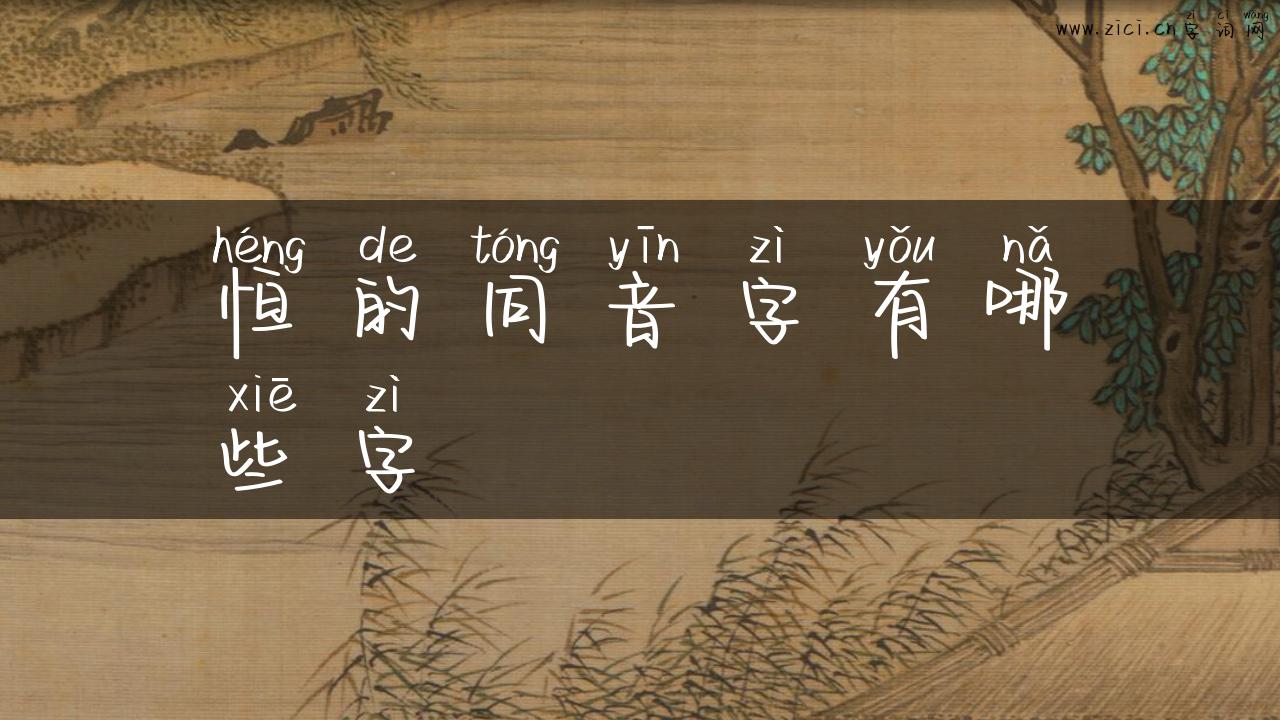 zì cí wǎng
www.zici.cn字词网
héng de tóng yīn zì yǒu nǎ
恒的同音字有哪
xiē zì
些字